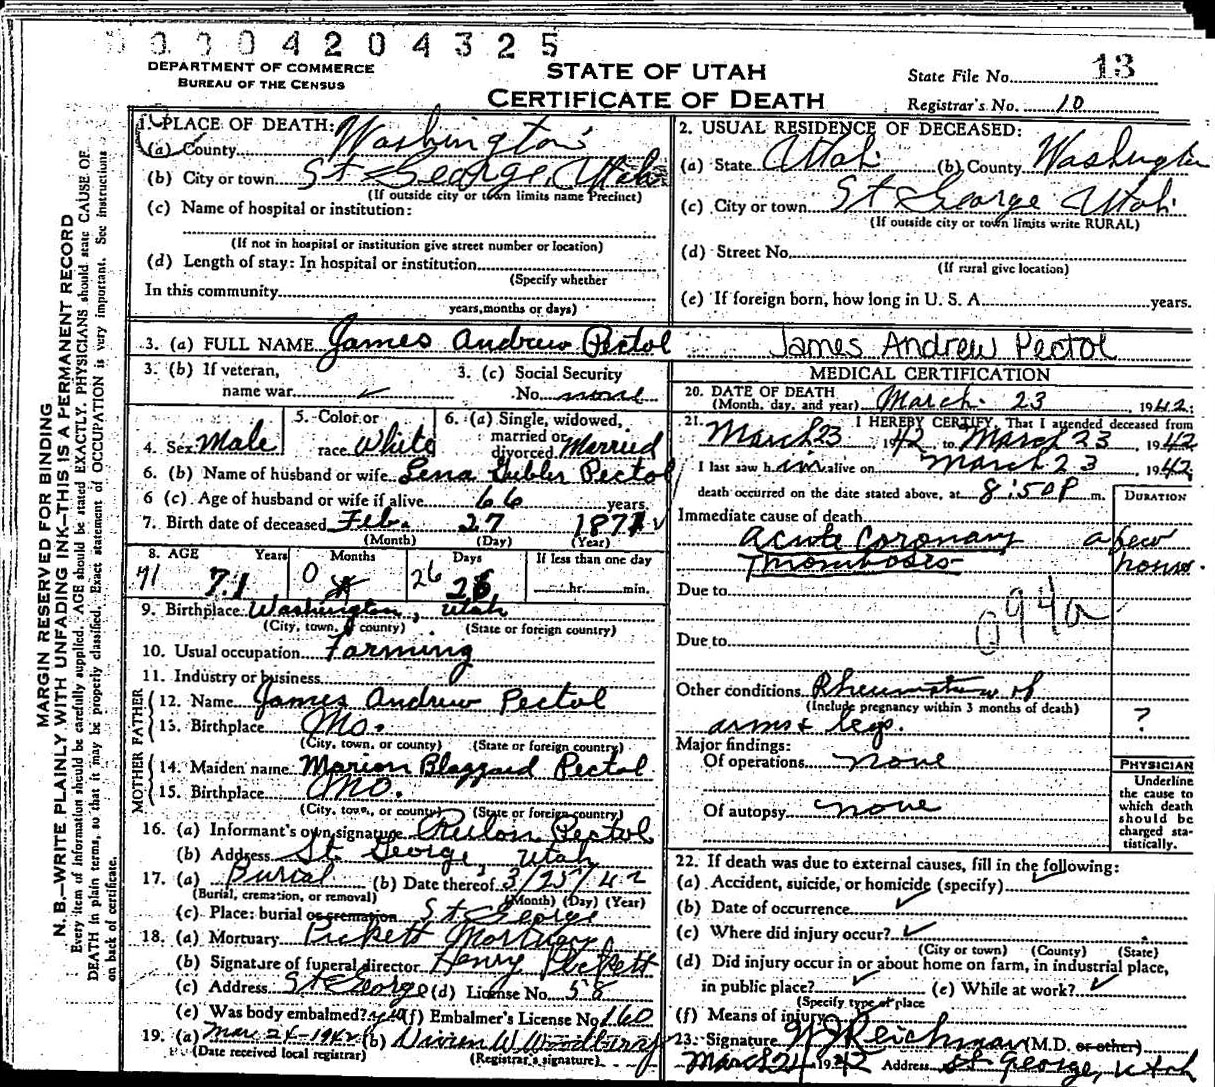 0004204325
DEPARTMENT OF COMMERCE
BUREAU OF THE CENSUS
STATE OF UTAH
CERTIFICATE OF DEATH
State File No. 13
Registrar's No. 10
MARGIN RESERVED FOR BINDING
N. B.—WRITE PLAINLY WITH UNFADING INK—THIS IS A PERMANENT RECORD
Every item of information should be carefully supplied. AGE should be stated EXACTLY. PHYSICIANS should state CAUSE OF
DEATH in plain terms, so that it may be properly classified. Exact statement of OCCUPATION is very important. See instructions
on back of certificate.
1. PLACE OF DEATH:
(a) County Washington
(b) City or town St George, Utah
(If outside city or town limits name Precinct)
(c) Name of hospital or institution:
(If not in hospital or institution give street number or location)
(d) Length of stay: In hospital or institution
(Specify whether
In this community
years, months or days)
2. USUAL RESIDENCE OF DECEASED:
(a) State Utah (b) County Washington
(c) City or town St George Utah
(If outside city or town limits write RURAL)
(d) Street No.
(If rural give location)
(e) If foreign born, how long in U. S. A. years.
3. (a) FULL NAME James Andrew Pectol James Andrew Pectol
3. (b) If veteran,
name war
3. (c) Social Security
No. none
4. Sex Male
5. Color or
race White
6. (a) Single, widowed,
married or
divorced Married
6. (b) Name of husband or wife Lena Gubler Pectol
6 (c) Age of husband or wife if alive 66 years
7. Birth date of deceased Feb. 27 1871
(Month) (Day) (Year)
8. AGE Years Months Days If less than one day
71 71 0 26 26 hr. min.
9. Birthplace Washington, Utah
(City, town, or county) (State or foreign country)
10. Usual occupation Farming
11. Industry or business
FATHER
12. Name James Andrew Pectol
13. Birthplace Mo.
(City, town, or county) (State or foreign country)
MOTHER
14. Maiden name Marion Blazzard Pectol
15. Birthplace Mo.
(City, town, or county) (State or foreign country)
16. (a) Informant's own signature Rulon Pectol
(b) Address St. George, Utah
17. (a) Burial (b) Date thereof 3/25/42
(Burial, cremation, or removal) (Month) (Day) (Year)
(c) Place: burial or cremation St George
18. (a) Mortuary Pickett Mortuary
(b) Signature of funeral director Henry Pickett
(c) Address St George (d) License No. 58
(e) Was body embalmed? yes (f) Embalmer's License No. 160
19. (a) Mar 24-1942 (b) Vivien W. Woodbury
(Date received local registrar) (Registrar's signature)
MEDICAL CERTIFICATION
20. DATE OF DEATH
(Month, day, and year) March 23, 1942
21. I HEREBY CERTIFY, That I attended deceased from
March 23, 1942 to March 23, 1942
I last saw him alive on March 23, 1942
death occurred on the date stated above, at 8:50 P m.
DURATION
Immediate cause of death
Acute Coronary a few
Thrombosis hours.
Due to
094a
Due to
Other conditions Rheumatism of
(Include pregnancy within 3 months of death)
arms & legs. ?
Major findings:
Of operations none
Of autopsy none
PHYSICIAN
Underline
the cause to
which death
should be
charged sta-
tistically.
22. If death was due to external causes, fill in the following:
(a) Accident, suicide, or homicide (specify)
(b) Date of occurrence
(c) Where did injury occur?
(City or town) (County) (State)
(d) Did injury occur in or about home on farm, in industrial place,
in public place? (e) While at work?
(Specify type of place
(f) Means of injury
23. Signature Reichman (M.D. or other)
March 24 1942 Address St George, Utah